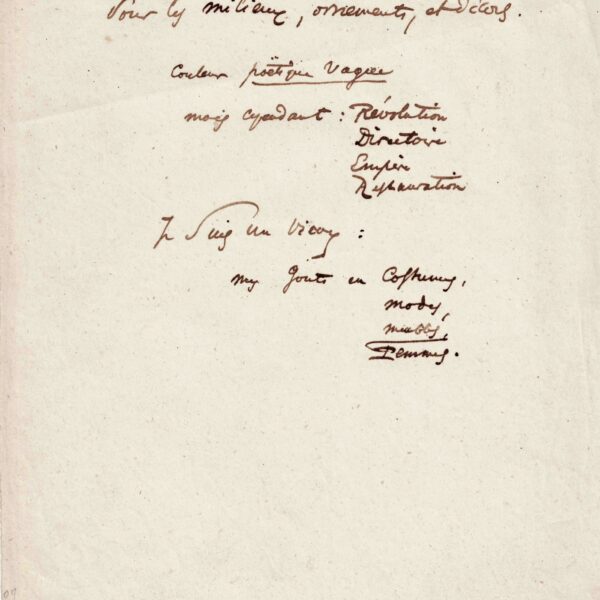 Pour les milieux, ornements, et décors.
Couleur poëtique Vague
mais cependant : Révolution
Directoire
Empire
Restauration
Je suis un vieux :
mes Goûts en Costumes,
modes,
meubles,
Femmes.